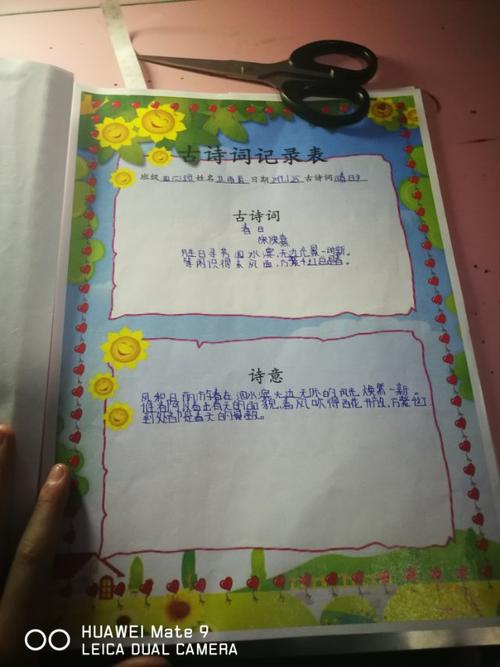 古诗词记录表
班级 四 班 姓名 日期 古诗词 春日
古诗词
春日
胜日寻芳泗水滨,无边光景一时新。
等闲识得东风面,万紫千红总是春。
诗意
风和日丽游春在泗水滨无边无际的风光焕然一新。
谁都可以看出春天的面貌,春风吹得百花开放,万紫千红
到处都是春天的景致。
HUAWEI Mate 9
LEICA DUAL CAMERA